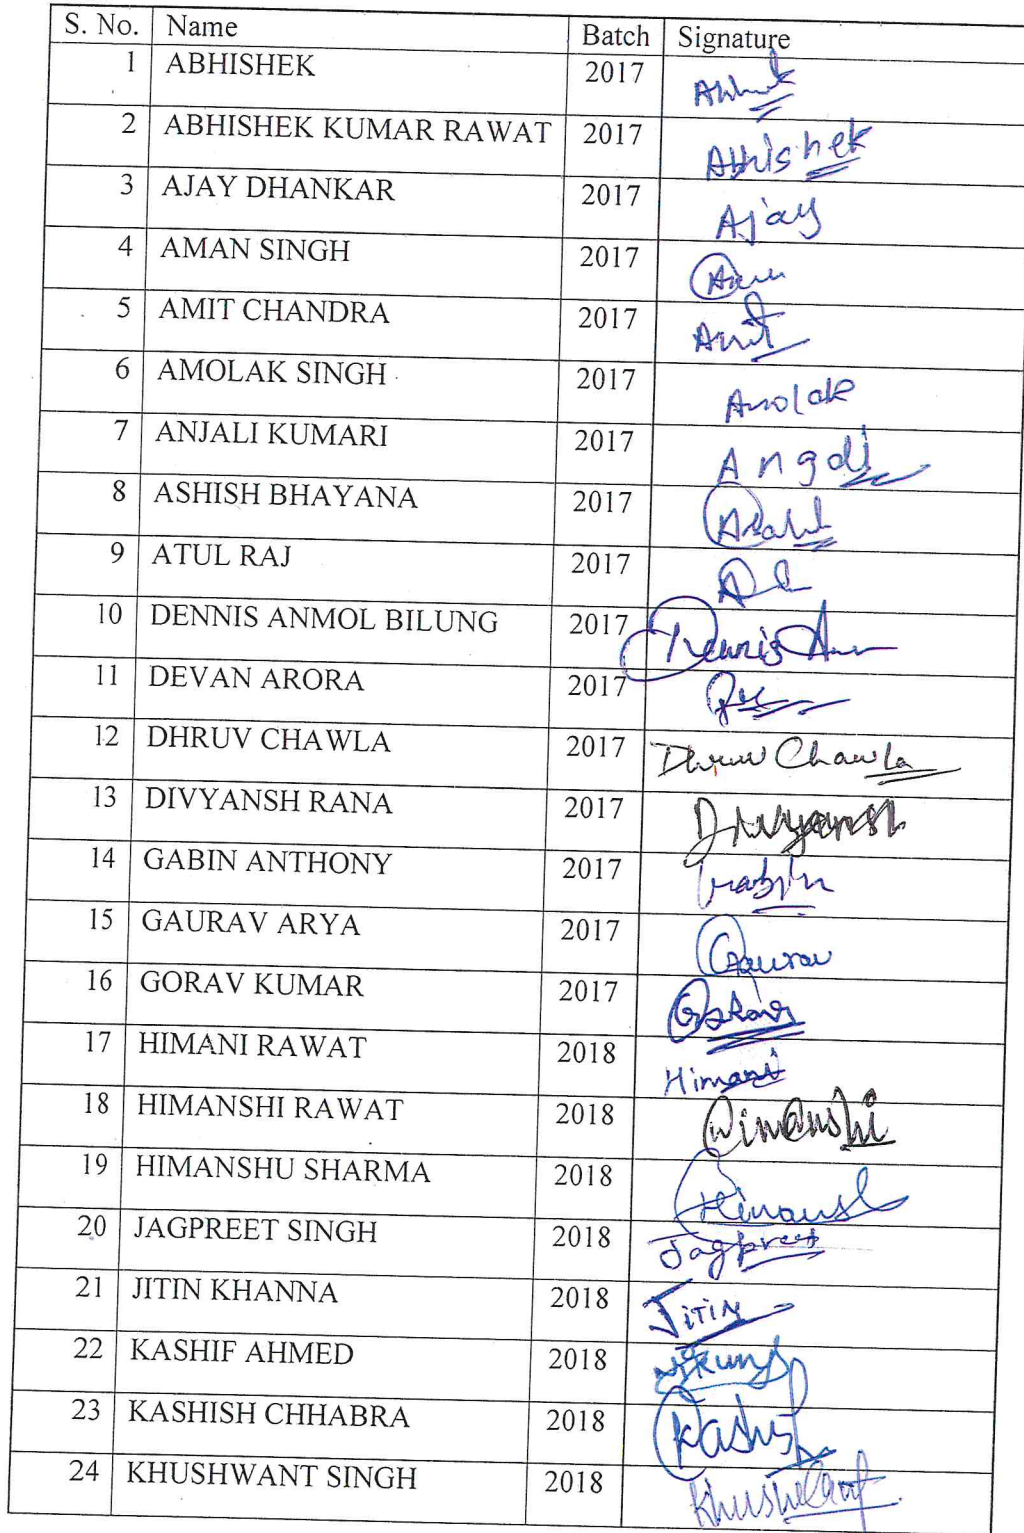 S. No. Name Batch Signature
1 ABHISHEK 2017
2 ABHISHEK KUMAR RAWAT 2017 Abhishek
3 AJAY DHANKAR 2017 Ajay
4 AMAN SINGH 2017
5 AMIT CHANDRA 2017 Amit
6 AMOLAK SINGH 2017 Amolak
7 ANJALI KUMARI 2017
8 ASHISH BHAYANA 2017
9 ATUL RAJ 2017
10 DENNIS ANMOL BILUNG 2017 Dennis
11 DEVAN ARORA 2017
12 DHRUV CHAWLA 2017 Dhruv Chawla
13 DIVYANSH RANA 2017 Divyansh
14 GABIN ANTHONY 2017 Gabin
15 GAURAV ARYA 2017 Gaurav
16 GORAV KUMAR 2017
17 HIMANI RAWAT 2018 Himani
18 HIMANSHI RAWAT 2018 Himanshi
19 HIMANSHU SHARMA 2018
20 JAGPREET SINGH 2018 Jagpreet
21 JITIN KHANNA 2018 JITIN
22 KASHIF AHMED 2018
23 KASHISH CHHABRA 2018
24 KHUSHWANT SINGH 2018